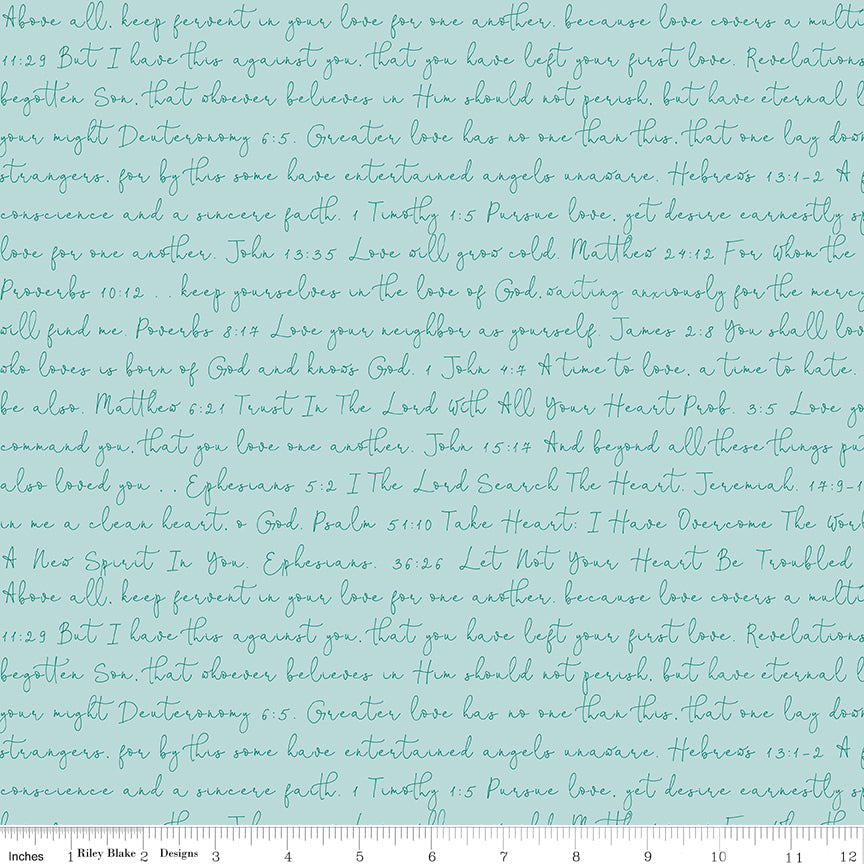 Above all, keep fervent in your love for one another, because love covers a multi
11:29 But I have this against you, that you have left your first love. Revelations
begotten Son, that whoever believes in Him should not perish, but have eternal l
your might Deuteronomy 6:5. Greater love has no one than this, that one lay down
strangers, for by this some have entertained angels unaware. Hebrews 13:1-2 A f
conscience and a sincere faith. 1 Timothy 1:5 Pursue love, yet desire earnestly sp
love for one another. John 13:35 Love will grow cold. Matthew 24:12 For Whom the
Proverbs 10:12 . . keep yourselves in the love of God, waiting anxiously for the mercy
will find me. Poverbs 8:17 Love your neighbor as yourself. James 2:8 You shall lov
who loves is born of God and knows God. 1 John 4:7 A time to love, a time to hate.
be also. Matthew 6:21 Trust In The Lord With All Your Heart Prob. 3:5 Love yo
command you, that you love one another. John 15:17 And beyond all these things pu
also loved you . . Ephesians 5:2 I The Lord Search The Heart. Jeremiah. 17:9-1
in me a clean heart, o God. Psalm 51:10 Take Heart; I Have Overcome The Worl
A New Spirit In You. Ephesians. 36:26 Let Not Your Heart Be Troubled
Above all, keep fervent in your love for one another, because love covers a multi
11:29 But I have this against you, that you have left your first love. Revelations
begotten Son, that whoever believes in Him should not perish, but have eternal l
your might Deuteronomy 6:5. Greater love has no one than this, that one lay down
strangers, for by this some have entertained angels unaware. Hebrews 13:1-2 A f
conscience and a sincere faith. 1 Timothy 1:5 Pursue love, yet desire earnestly sp
Inches 1 Riley Blake 2 Designs 3 4 5 6 7 8 9 10 11 12